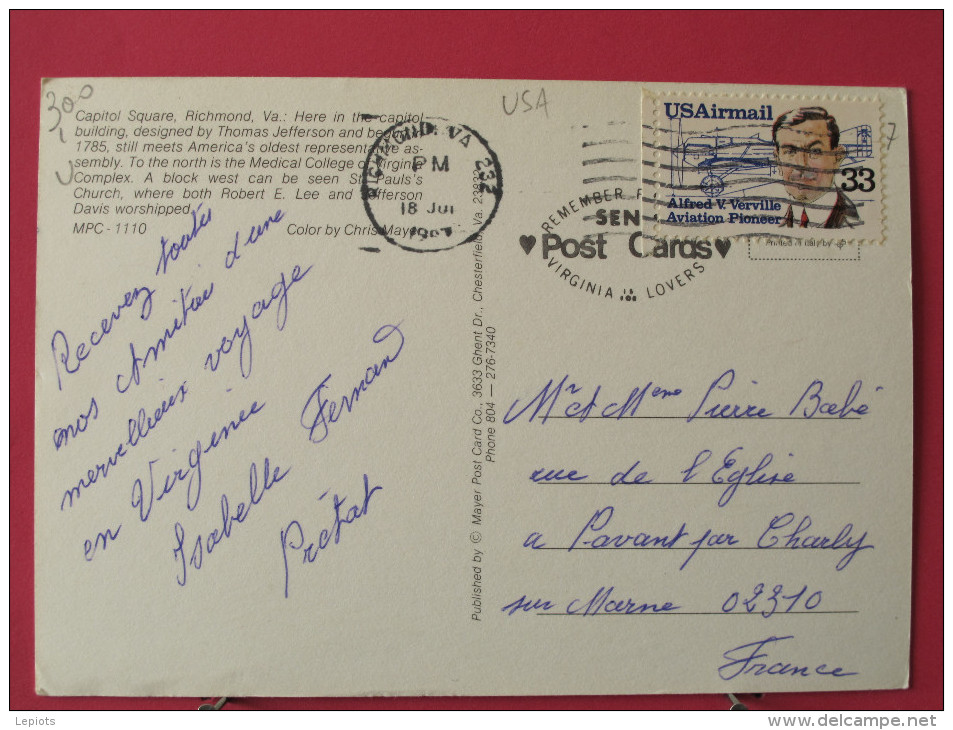 300
USA
Capitol Square, Richmond, Va.: Here in the capitol
building, designed by Thomas Jefferson and begun
1785, still meets America's oldest representative as-
sembly. To the north is the Medical College of Virginia
Complex. A block west can be seen St. Pauls's
Church, where both Robert E. Lee and Jefferson
Davis worshipped.
MPC - 1110 Color by Chris Mayer
RICHMOND, VA 232
PM
18 Jul
REMEMBER
SEN
♥Post Cards♥
VIRGINIA IS FOR LOVERS
USAirmail
33
Alfred V. Verville
Aviation Pioneer
Recevez toutes
nos Amitiés d'une
merveilleux voyage
en Virginie
Isabelle Fernand
Prétat
Published by © Mayer Post Card Co., 3633 Ghent Dr., Chesterfield, Va. 23832
Phone 804 — 276-7340
Mr et Mme Pierre Babé
rue de l'Eglise
a Pavant par Charly
sur Marne 02310
France
Lepiots
www.delcampe.net